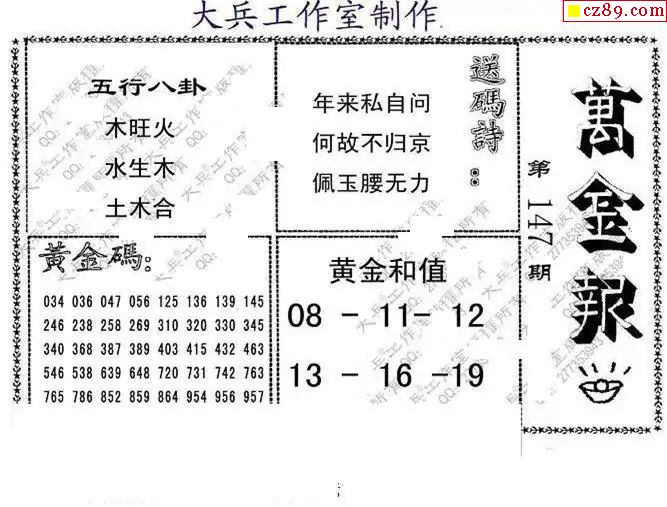 大兵工作室制作.
cz89.com
五行八卦
木旺火
水生木
土木合
送碼詩:
年来私自问
何故不归京
佩玉腰无力
萬金報
第147期
黃金碼:
034 036 047 056 125 136 139 145
246 238 258 269 310 320 330 345
340 368 387 389 403 415 432 463
546 538 639 648 720 731 742 763
765 786 852 859 864 954 956 957
黄金和值
08 - 11- 12
13 - 16 -19